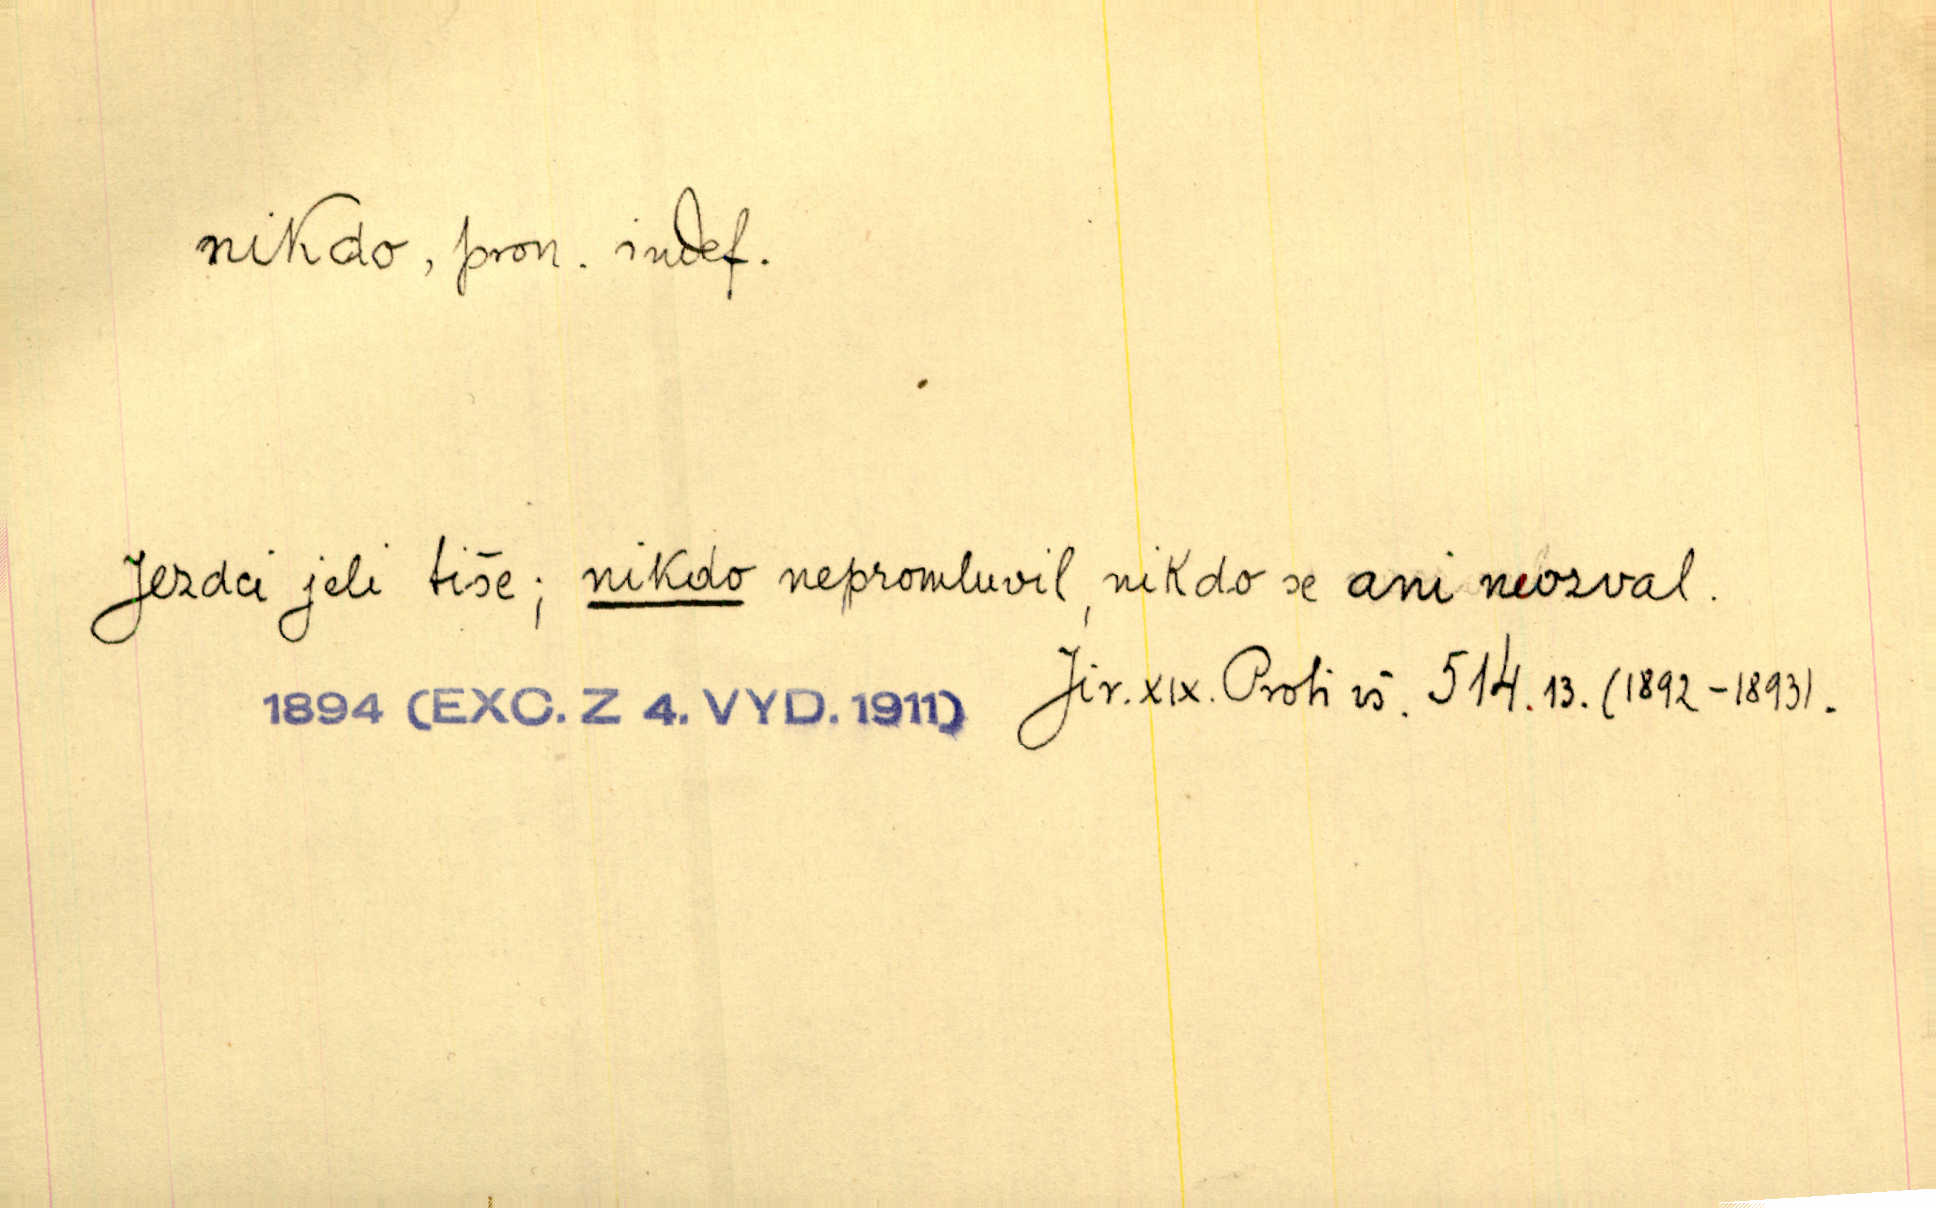 nikdo, pron. indef.
Jezdci jeli tiše; nikdo nepromluvil, nikdo se ani neozval.
Jir. XIX. Proti vš. 514.13. (1892-1893).
1894 (EXC. Z 4. VYD. 1911)